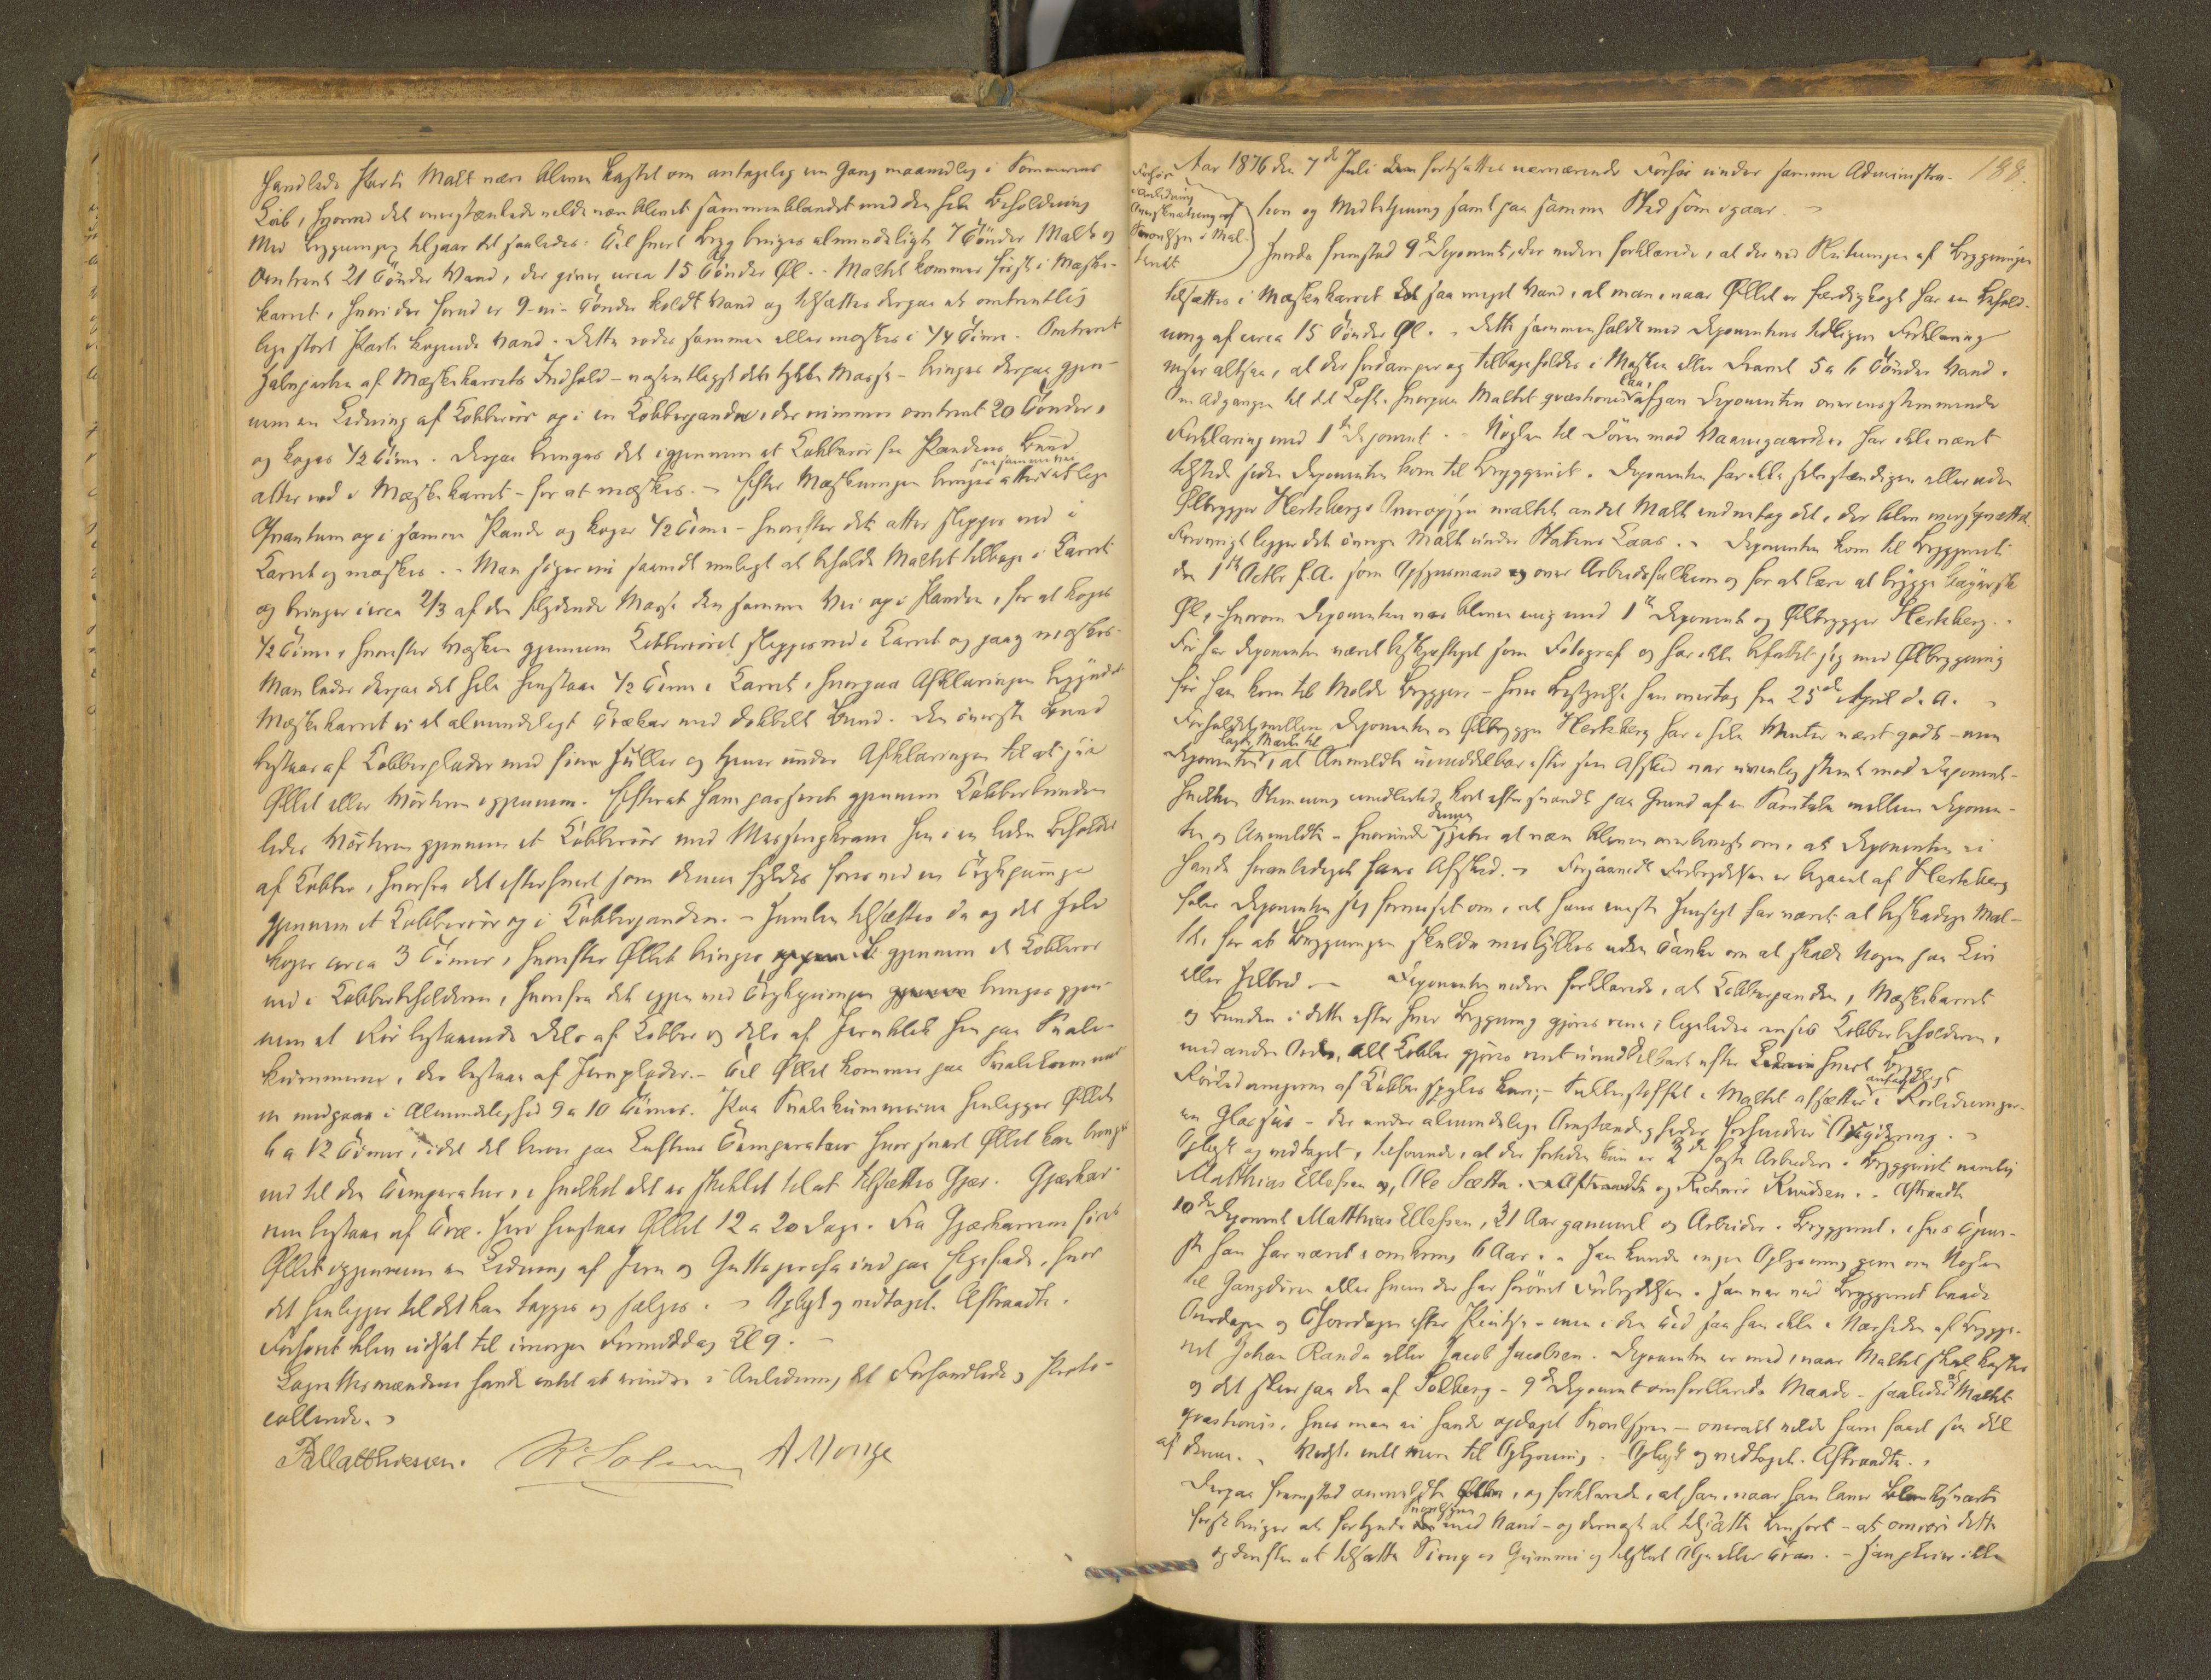 handlede Parti Malt være bleven kastet om antagelig en Gang maanedlig i Sommerens
Løb, hvorved det ovenstænkede vilde være blevet sammenblandet med den hele Beholdning
Med Brygningen tilgaar det saaledes: Til hvert Bryg bruges almindeligt 7 Tønder Malt og
omtrent 21 Tønder Vand, der giver circa 15 Tønder Øl. - Maltet kommer først i Mæske-
karret, hvori der forud er 9-ni-Tønder koldt Vand og tilsættes derpaa et omtrentlig
lige stort Parti kogende Vand. Dette røres sammen eller mæskes i 1/4 Time. Omtrent
Halvparten af Mæskekarrets Indhold - væsentligst det tykke Masse - bringes derpaa gjen-
nem en Ledning af Kobberrør op i en Kobberpande, der rummer omtrent 20 Tønder,
og koges 1/2 Time. Derpaa bringes det igjennem et Kobberrør fra Pandens Bund
atter ned i Mæskekarret - for at mæskes. - Efter Mæskningen bringes atter paa samme Vei et lige
Qvantum op i samme Pande og koges 1/2 Time - hvorefter det atter slippes ned i
Karret og mæskes. - Man søger nu saavidt muligt at beholde Maltet tilbage i Karret
og bringer circa 2/3 af den flydende Masse den samme Vei op i Panden, for at koges
1/2 Time, hvorefter Massen gjennem Kobberrøret slippes ned i Karret og paany mæskes.
Man lader derpaa det hele henstaa 1/2 Time i Karret, hvorpaa Afklaringen begynder
Mæskekarret er et almindeligt Trækar med dobbelt Bund. Den øverste Bund
bestaar af Kobberplader med fine Huller og tjener under Afklaringen til at sie
Øllet eller Vørteren igjennem. Efterat have passeret gjennem Kobberbunden
ledes Vørteren gjennem et Kobberrør med Messingkrane hen i en liden Beholder
af Kobber, hvorfra det efterhvert som denne fyldes føres ved en Trykpumpe
gjennem et Kobberrør op i Kobberpanden. - Humlen tilsættes da og det hele
koges circa 3 Timer, hvorefter Øllet bringes gjennem et Kobberrør
ned i Kobberbeholderen, hvorfra det igjen ved Trykpumpen bringes gjen-
nem et Rør bestaaende dels af Kobber og dels af Jernblik hen paa Svale-
kummerne, der bestaar af Jernplader. - Til Øllet kommer paa Svalekummer
ne medgaar i Almindelighed 9 a 10 Timer. Paa Svalekummerne henligger Øllet
6 a 12 Timer, idet det beror paa Luftens Temperatur hvor snart Øllet kan bringes
ned til den Temperatur, i hvilket det er skikket til at tilsættes Gjær. Gjærkar-
rene bestaar af Træ. Her henstaar Øllet 12 a 20 Dage. Fra Gjærkarrene føres
Øllet igjennem en Ledning af Jern og Guttapercha ind paa Ligefade, hvor
det henligger til det kan tappes og sælges. - Oplæst og vedtaget. Aftraadte.
Forhøret blev udsat til imorgen Formiddag Kl 9. -
Lagrettesmændene havde intet at erindre i Anledning det Forhandlede og Proto-
collerede. -
F Matthiesen. A Monge
188.
Forhør
i Anledning
Omstænkning af
Svovlsyre i Mal-
tet
Aar 1876 den 7de Juli fortsattes nærværende Forhør under samme Administra-
tion og Medbetjening samt paa samme Sted som igaar. -
Hvorda fremstod 9de Deponent, der videre forklarede, at der ved Slutningen af Brygningen
tilsættes i Mæskekarret saa meget Vand, at man, naar Øllet er færdigkogt har en Behold-
ning af circa 15 Tønder Øl. - Dette sammenholdt med Deponentens tidligere Forklaring
viser altsaa, at der fordamper og tilbageholdes i Masken eller Dravet 5 a 6 Tønder Vand.
Om Adgangen til det Loft, hvorpaa Maltet qvæstionis laa, afgav Deponenten overensstemmende
Forklaring med 1ste Deponent. - Nøglen til Døren mod Vaaningsgaarden har ikke været
tilstede siden Deponenten kom til Bryggeriet. Deponenten har ikke selvstændigen eller uden
Ølbrygger Hertzbergs Overopsyn maltet andet Malt undtagen det, der blev oversprættet.
Forøvrigt ligger det øvrige Malt under Statens Laas. - Deponenten kom til Bryggeriet
den 1ste Octbr f. A. som Opsynsmand over Arbeidsfolkene og for at lære at brygge bayersk
Øl, - hvorom Deponenten var bleven enig med 1ste Deponent og Ølbrygger Hertzberg. -
Før har Deponenten været beskjæftiget som Fotograf og har ikke befattet sig med Ølbrygning
før han kom til Molde Bryggeri - hvis Bestyrelse han overtog fra 25de April d. A. -
Forholdet mellem Deponenten og Ølbrygger Hertzberg har i hele Vinter været godt - men
lagde Mærke til
Deponenten, at Anmeldte umiddelbar efter sin Afsked var uvenlig stemt mod Deponent-
hvilken Stemning imidlertid kort efter svandt paa Grund af en Samtale mellem Deponen-
ten og Anmeldte - hvorunder denne synes at være bleven overbevist om, at Deponenten ei
havde foranlediget hans Afsked. - Forsaavidt Forbrydelsen er begaaet af Hertzberg
føler Deponenten sig forvisset om, at hans eneste Hensigt har været at beskadige Mal-
tet, for at Brygningen skulde mislykkes uden Tanke om at skade Nogen paa Liv
eller Helbred. - Deponenten videre forklarede, at Kobberpanden, Mæskekarret
og Bunden i dette efter hver Brygning gjøres rene; ligeledes renses Kobberbeholderen,
med andre Ord, alt Kobber gjøres rent umiddelbart efter hvert Bryg.
Rørledningerne af Kobber skylles kun; - Sukkerstoffet i Maltet afsætter antageligt i Rørledninger
en Glasur - der under almindelige Omstændigheder forhindrer Irrgiftning. -
Oplæst og vedtaget, tilføiende, at der fortiden kun er 2de faste Arbeidere i Bryggeriet nemlig
Matthias Ellefsen og, Ole Sætta. - og Richard Knudsen. - Aftraadte
10de Deponent Matthias Ellefsen, 31 Aar gammel og Arbeider i Bryggeriet, i hvis Tjene-
ste han har været i omkring 6 Aar. - Han kunde ingen Oplysning give om Nøglen
til Gangdøren eller hvem der har forøvet Forbrydelsen. Han var ved Bryggeriet baade
Onsdagen og Thorsdagen efter Pintse - men i den Tid saa han ikke i Nærheden af Brygge-
riet Johan Randa eller Jacob Jacobsen. Deponenten er med, naar Maltet skal kastes
og det sker paa den af Solberg - 9de Deponent omforklarede Maade - saaledes at Maltet
qvæstionis, hvis man ei havde opdaget Svovlsyren - overalt vilde have faaet en Del
af denne. - Vidste intet mere til Oplysning. - Oplæst og vedtaget. Aftraadte. -
Derpaa fremstod anmeldte, og forklarede, at han, naar han laver Blanksværte
først bruger at fortynde Svovlsyren med Vand - og dernæst at tilsætte Bensort - at omrøre dette
og derefter at tilsætte Sirup og Gummi og tilsidst Olje eller Tran. - Han pleier ikke